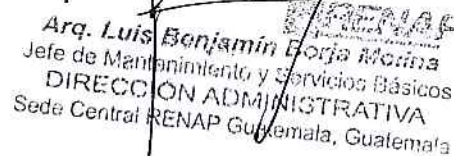 RENAP
Arq. Luis Benjamín Borja Morina
Jefe de Mantenimiento y Servicios Básicos
DIRECCIÓN ADMINISTRATIVA
Sede Central RENAP Guatemala, Guatemala